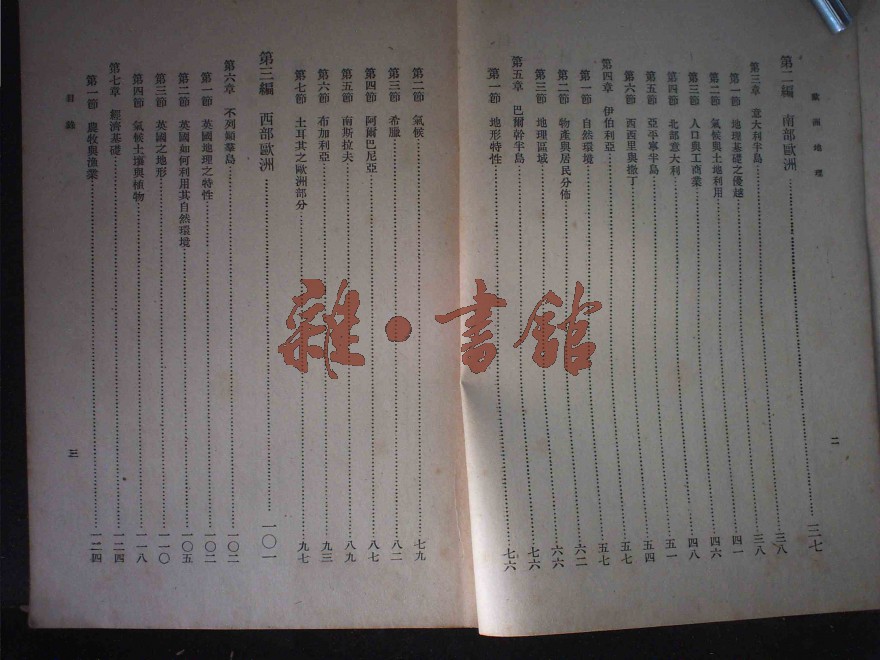 歐洲地理
二
第二編 南部歐洲 三七
第三章 意大利半島 三八
第一節 地理基礎之優越 四一
第二節 氣候與土地利用 四六
第三節 人口與工商業 四八
第四節 北部意大利 五一
第五節 亞平寧半島 五四
第六節 西西里與撒丁 五七
第四章 伊伯利亞 五七
第一節 自然環境 六二
第二節 物產與居民分佈 六六
第三節 地理區域 七六
第五章 巴爾幹半島
第一節 地形特性 七六
第二節 氣候 七九
第三節 希臘 八二
第四節 阿爾巴尼亞 八七
第五節 南斯拉夫 八九
第六節 布加利亞 九三
第七節 土耳其之歐洲部分 九七
第三編 西部歐洲 一〇一
第六章 不列顛羣島 一〇二
第一節 英國地理之特性 一〇二
第二節 英國如何利用其自然環境 一〇五
第三節 英國之地形 一一〇
第四節 氣候土壤與植物 一一八
第七章 經濟基礎 一二四
第一節 農牧與漁業 一二四
目錄
三
雜·書館